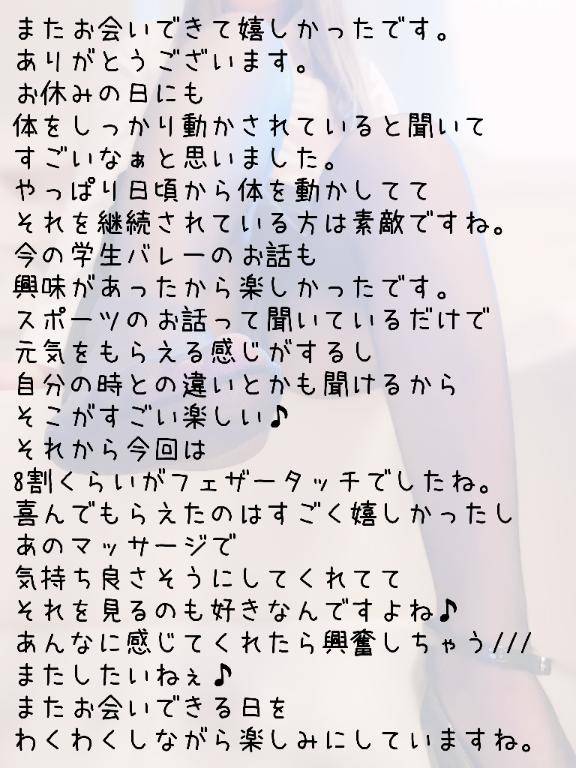 またお会いできて嬉しかったです。
ありがとうございます。
お休みの日にも
体をしっかり動かされていると聞いて
すごいなぁと思いました。
やっぱり日頃から体を動かしてて
それを継続されている方は素敵ですね。
今の学生バレーのお話も
興味があったから楽しかったです。
スポーツのお話って聞いているだけで
元気をもらえる感じがするし
自分の時との違いとかも聞けるから
そこがすごい楽しい♪
それから今回は
8割くらいがフェザータッチでしたね。
喜んでもらえたのはすごく嬉しかったし
あのマッサージで
気持ち良さそうにしてくれてて
それを見るのも好きなんですよね♪
あんなに感じてくれたら興奮しちゃう///
またしたいねぇ♪
またお会いできる日を
わくわくしながら楽しみにしていますね。